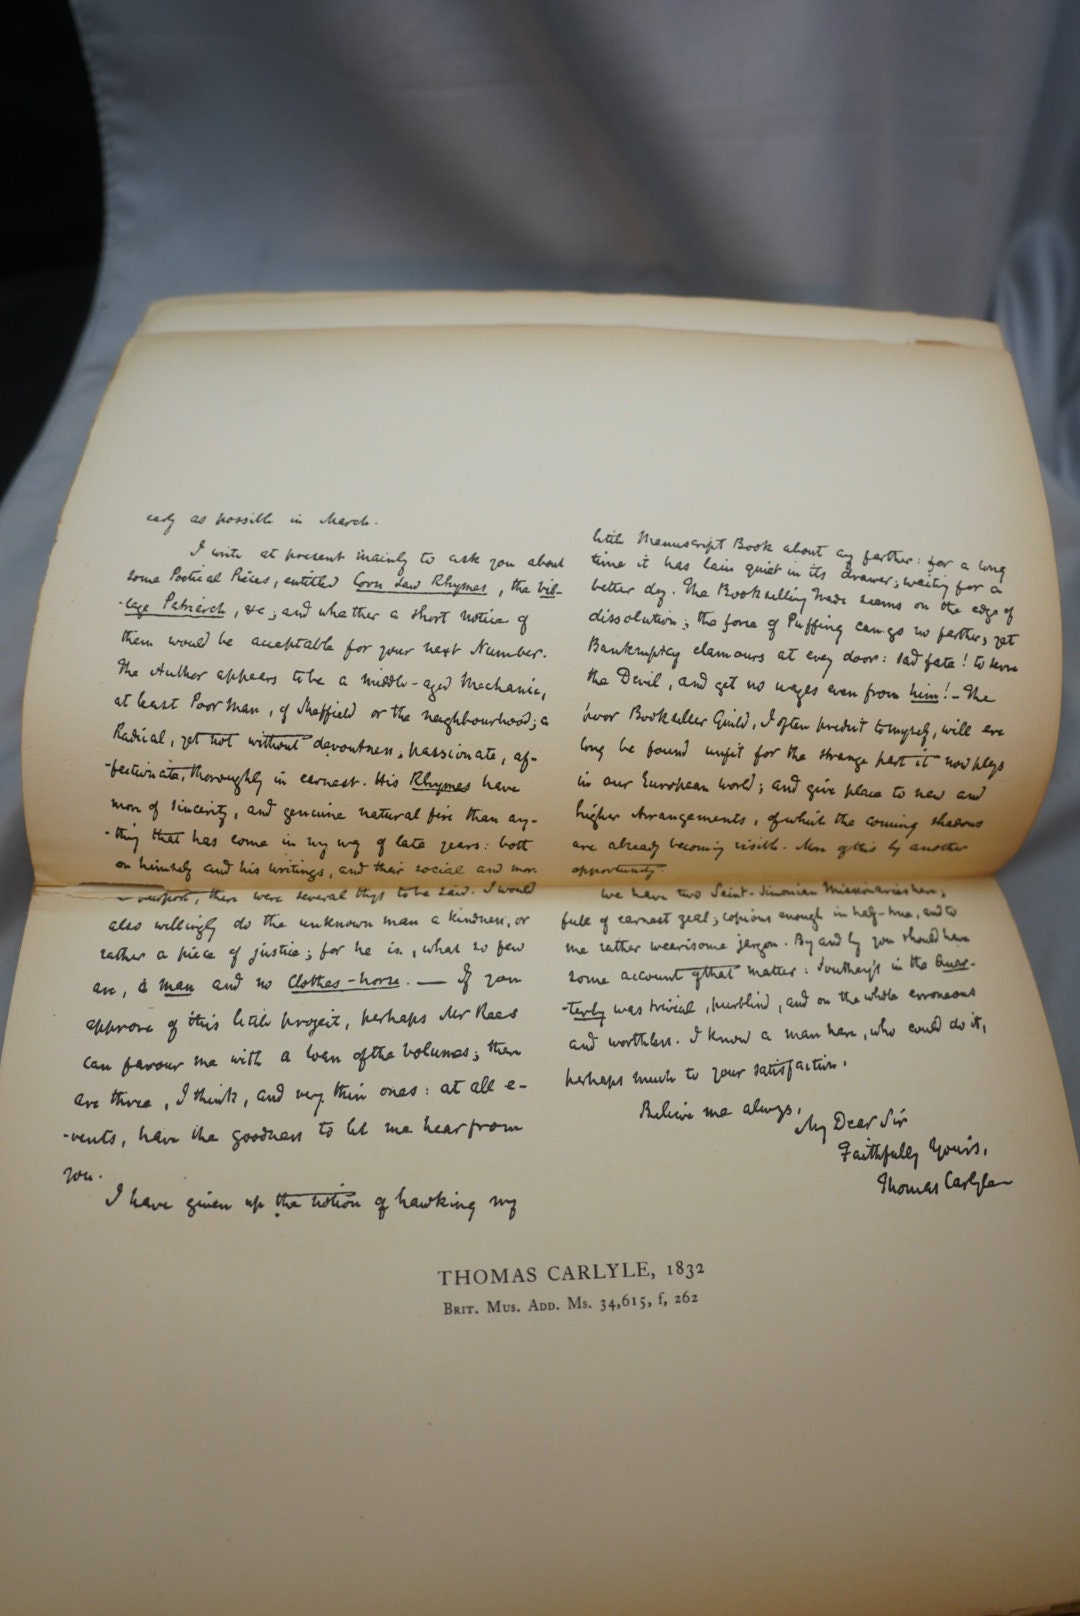 early as possible in March.
I write at present mainly to ask you about
some Poetical Pieces, entitled Corn Law Rhymes, the Vil-
-lage Patriarch, &c; and whether a short notice of
them would be acceptable for your next Number.
The Author appears to be a middle-aged Mechanic,
at least Poor Man, of Sheffield or the neighbourhood; a
Radical, yet not without devoutness, passionate, af-
-fectionate, thoroughly in earnest. His Rhymes have
more of sincerity, and genuine natural fire than any-
-thing that has come in my way of late years: both
on himself and his writings, and their social and mor
there were several things to be said. I would
also willingly do the unknown man a kindness, or
rather a piece of justice; for he is, what so few
are, a man and no Clothes-horse. — If you
approve of this little project, perhaps Mr Rees
can favour me with a loan of the volumes; there
are three, I think, and very thin ones: at all e-
-vents, have the goodness to let me hear from
you.
I have given up the notion of hawking my
little Manuscript Book about any farther: for a long
time it has lain quiet in its drawer, waiting for a
better day. The Bookselling trade seems on the edge of
dissolution; the force of Puffing can go no farther, yet
Bankruptcy clamours at every door: sad fate! to serve
the Devil, and get no wages even from him! – The
poor Bookseller Guild, I often predict to myself, will ere
long be found unfit for the strange part it now plays
in our European world; and give place to new and
higher Arrangements, of which the coming shadows
are already becoming visible. More of this by another
opportunity.
We have two Saint-Simonian Missionaries here;
full of earnest zeal; copious enough in half-true, and to
me rather wearisome jargon. By and by you should have
some account of that matter: Southey's in the Quar-
-terly was trivial, purblind, and on the whole erroneous
and worthless. I know a man here, who could do it,
perhaps much to your satisfaction.
Believe me always,
My Dear Sir
Faithfully Yours,
Thomas Carlyle
THOMAS CARLYLE, 1832
BRIT. MUS. ADD. MS. 34,615, f, 262